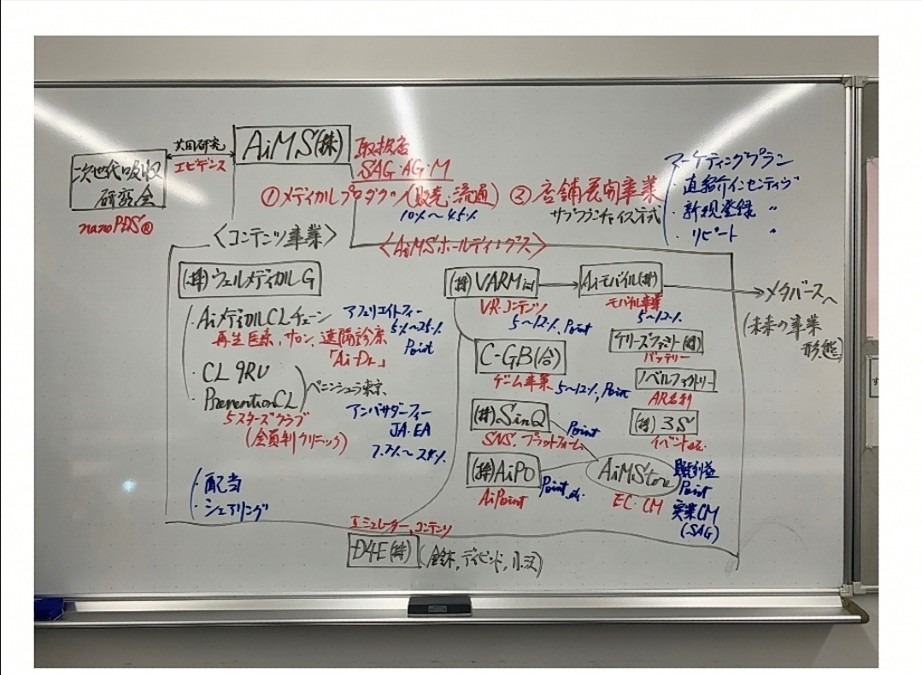 共同研究
エビデンス
次世代吸収
研究会
nanoPDS®
AiMS(株)
取扱店
SAG・AG・M
①メディカルプロダクツ(販売・流通)
10%〜45%
②店舗展開事業
サブフランチャイズ方式
マーケティングプラン
・直紹介インセンティヴ
・新規登録 〃
・リピート 〃
〈コンテンツ事業〉
〈AiMSホールディングス〉
(株)ウェルメディカルG
・AiメディカルCLチェーン
再生医療、サロン、遠隔診療
「Ai-Dr」
アフェリエイトフィー
5%〜25%
Point
・CL 9RU
PreventionCL
ペニンシュラ東京
5スターズクラブ
(会員制クリニック)
アンバサダーフィー
JA・EA
7.2%〜24%
・配当
・シェアリング
(株)VARM
VR・コンテンツ
5〜12% Point
Aiモバイル(株)
モバイル事業
5〜12%
メタバースへ
(未来の事業
形態)
C-GB(合)
ゲーム事業
5〜12%, Point
バッテリー
ノベルファクトリー
AR名刺
(株)SinQ
SNS、プラットフォーム
Point
(株)3S
イベントetc.
(株)AiPO
AiPoint
Point etc.
AiMStore
EC・CM
Point
実業CM
(SAG)
エミュレーター、コンテンツ
D4E(株)